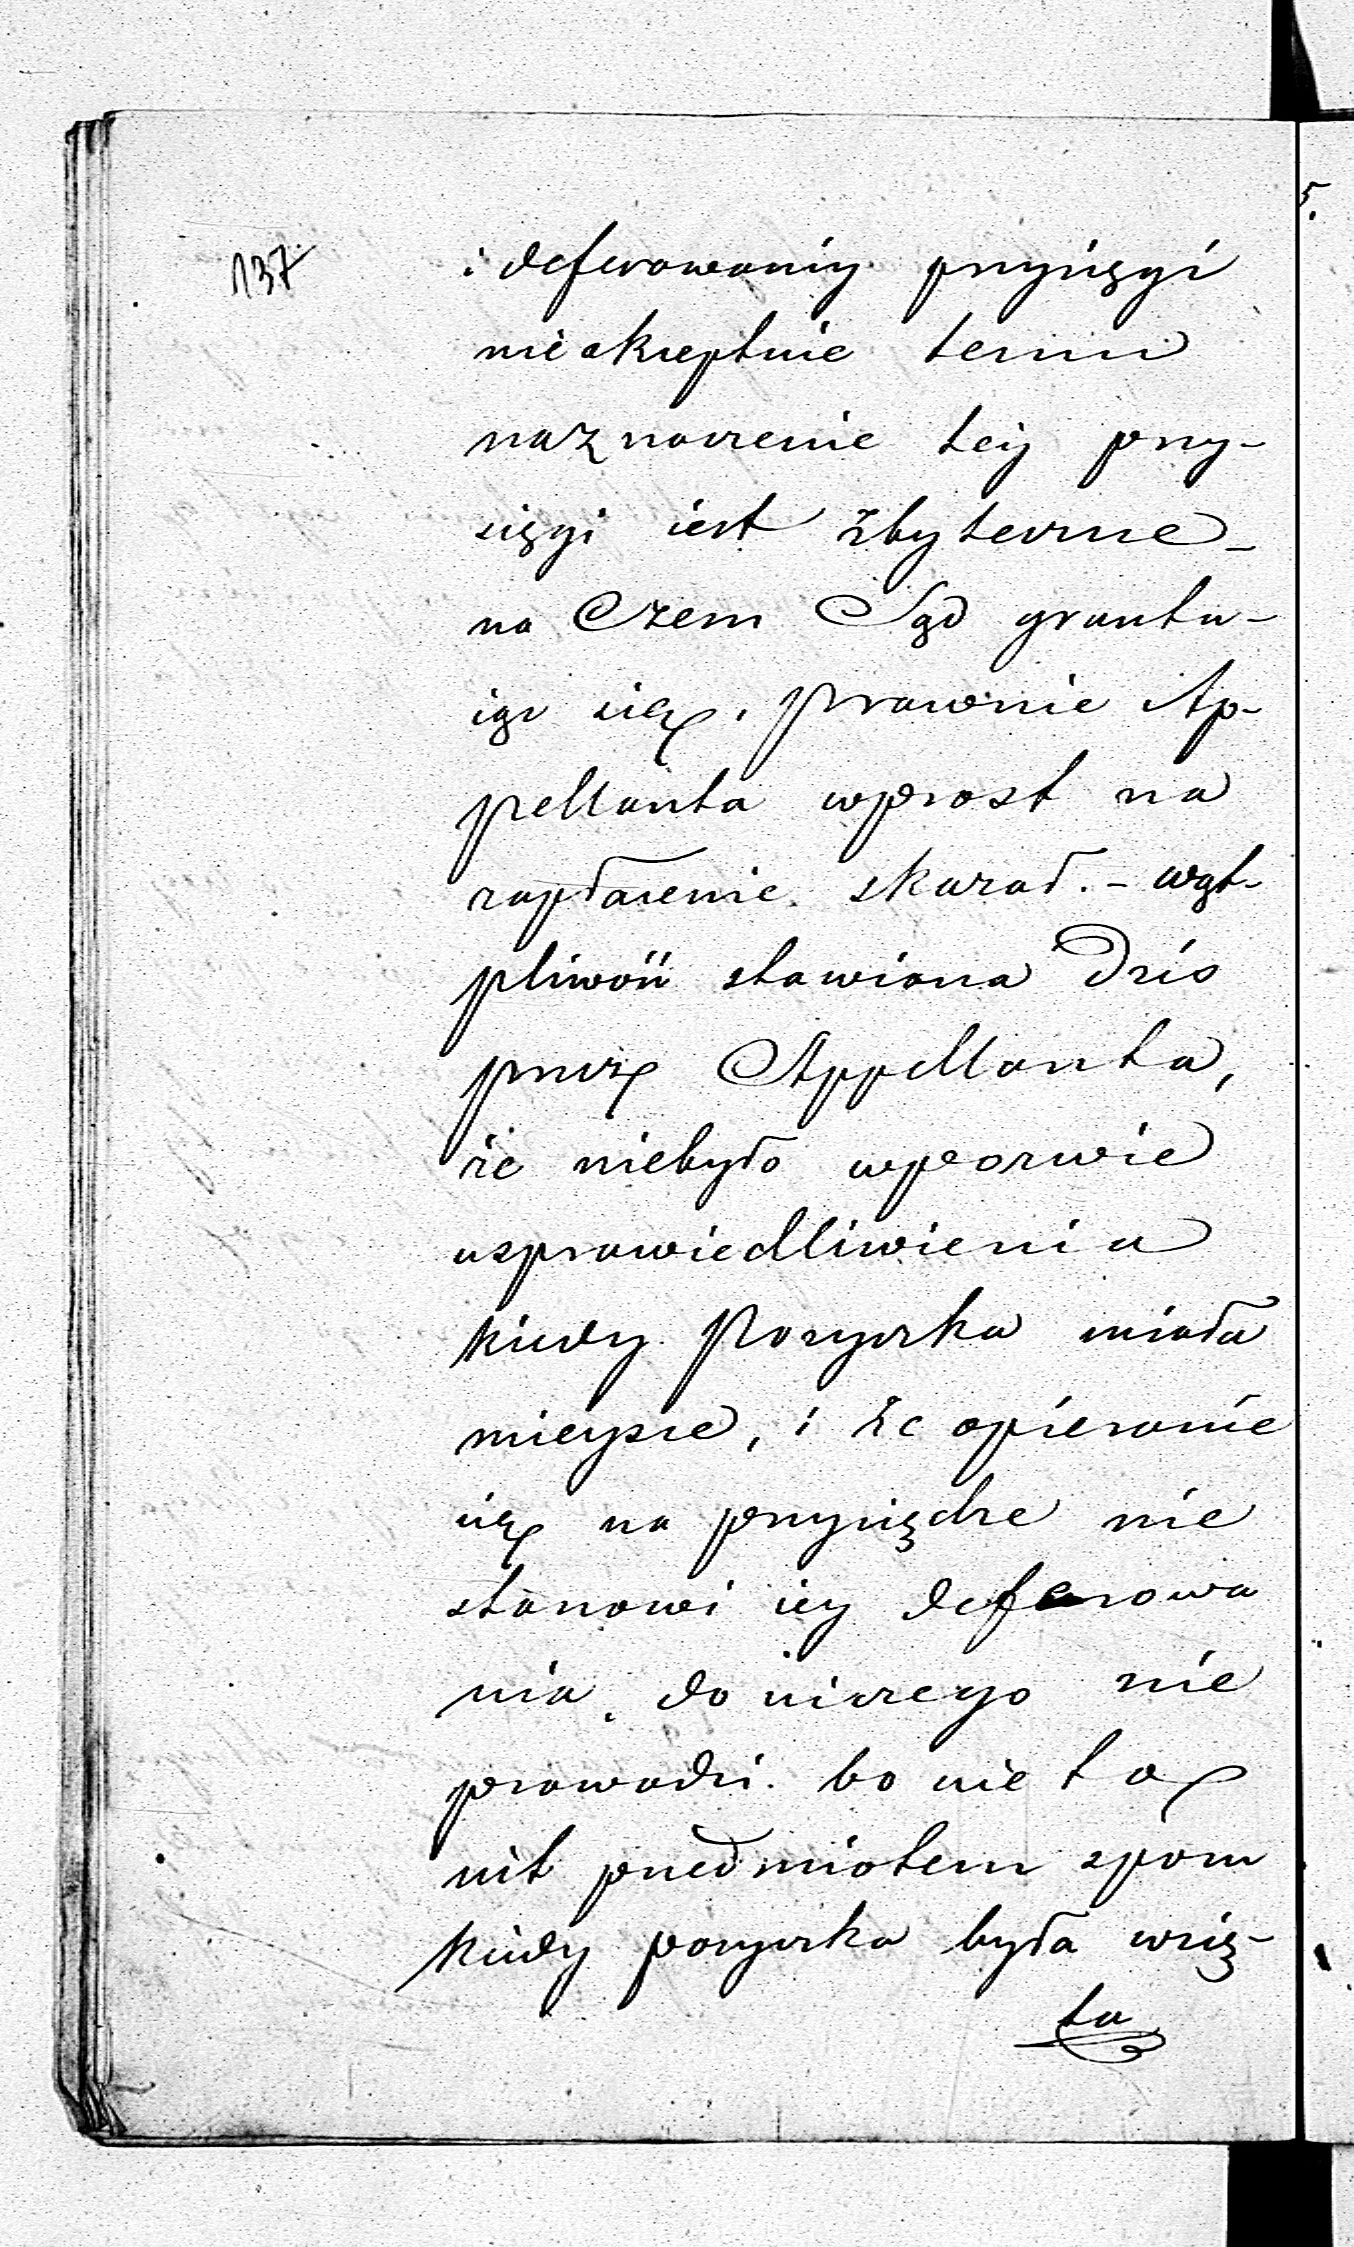 137
i deferowaniy przysięgi
nie akceptuie temu
naznaczenie teiy przy-
sięgi iest zbyteczne -
na Czem Sąd gruntu-
iąc się, prawnie Ap-
pellanta wprost na
zapłacenie skazał. - wąt-
pliwość stawiana Dziś
przez Appellanta,
że niebyło wpozwie
usprawiedliwienia
kiedy Pożyczka miała
mieysce, i że opieranie
się na przysiędze nie
stanowi iey deferowa
nia, do niczego nie
prowadzi. bo nie to
iest przedmiotem sporu
kiedy pożyczka była wzię-
ta
5.